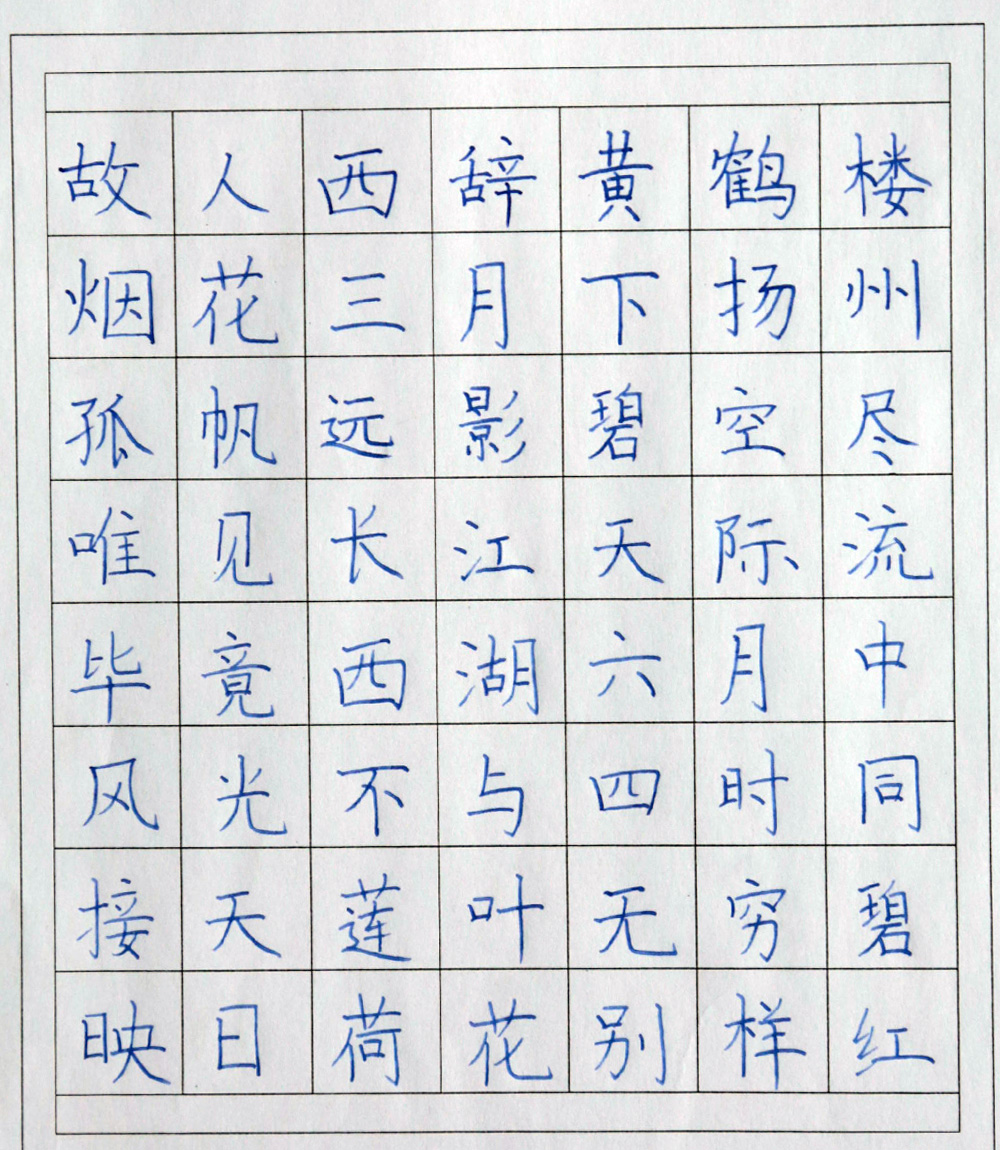 故人西辞黄鹤楼
烟花三月下扬州
孤帆远影碧空尽
唯见长江天际流
毕竟西湖六月中
风光不与四时同
接天莲叶无穷碧
映日荷花别样红